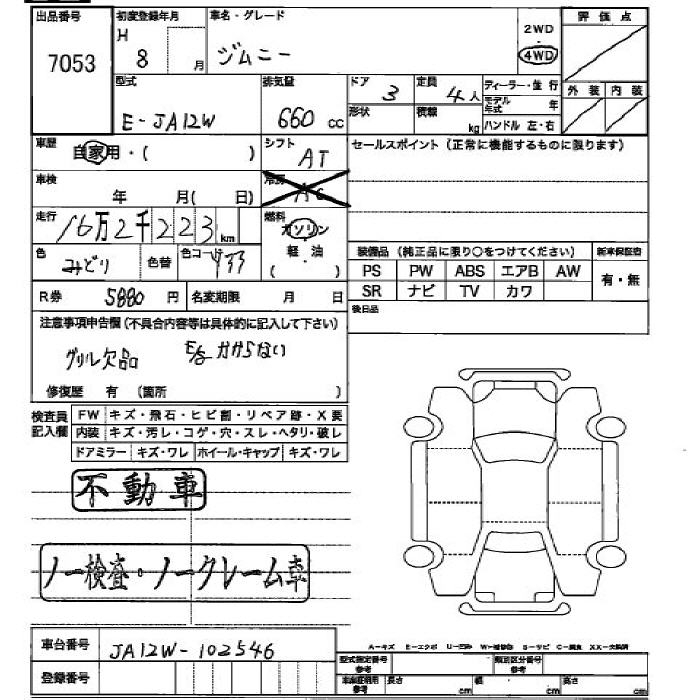 出品番号 初度登録年月 車名・グレード 評価点
7053 H 8 月 ジムニー 2WD ・ 4WD
型式 排気量 ドア 3 定員 4人 ディーラー・並行 外装 内装
E-JA12W 660 cc 形状 積載 kg モデル年式 年
ハンドル 左・右
車歴 自家用・( ) シフト AT セールスポイント(正常に機能するものに限ります)
車検 年 月( 日) 冷房 AC
走行 16万2千223 km 燃料 ガソリン
色 みどり 色替 色コード 軽・油 ( )
装備品 (純正品に限り○をつけてください) 新車保証書
PS PW ABS エアB AW 有・無
SR ナビ TV カワ
R券 5880 円 名変期限 月 日 後日品
注意事項申告欄(不具合内容等は具体的に記入して下さい)
グリル欠品 E/g かからない
修復歴 有 (箇所 )
検査員記入欄 FW キズ・飛石・ヒビ割・リペア跡・X要
内装 キズ・汚レ・コゲ・穴・スレ・ヘタリ・破レ
ドアミラー キズ・ワレ ホイール・キャップ キズ・ワレ
不動車
ノー検査・ノークレーム車
車台番号 JA12W-102546
A-キズ E-エクボ U-凹み W-補修跡 S-サビ C-腐食 XX-交換済
登録番号 型式指定番号 参考 類別区分番号 参考
車庫証明用 参考 長さ cm 幅 cm 高さ cm